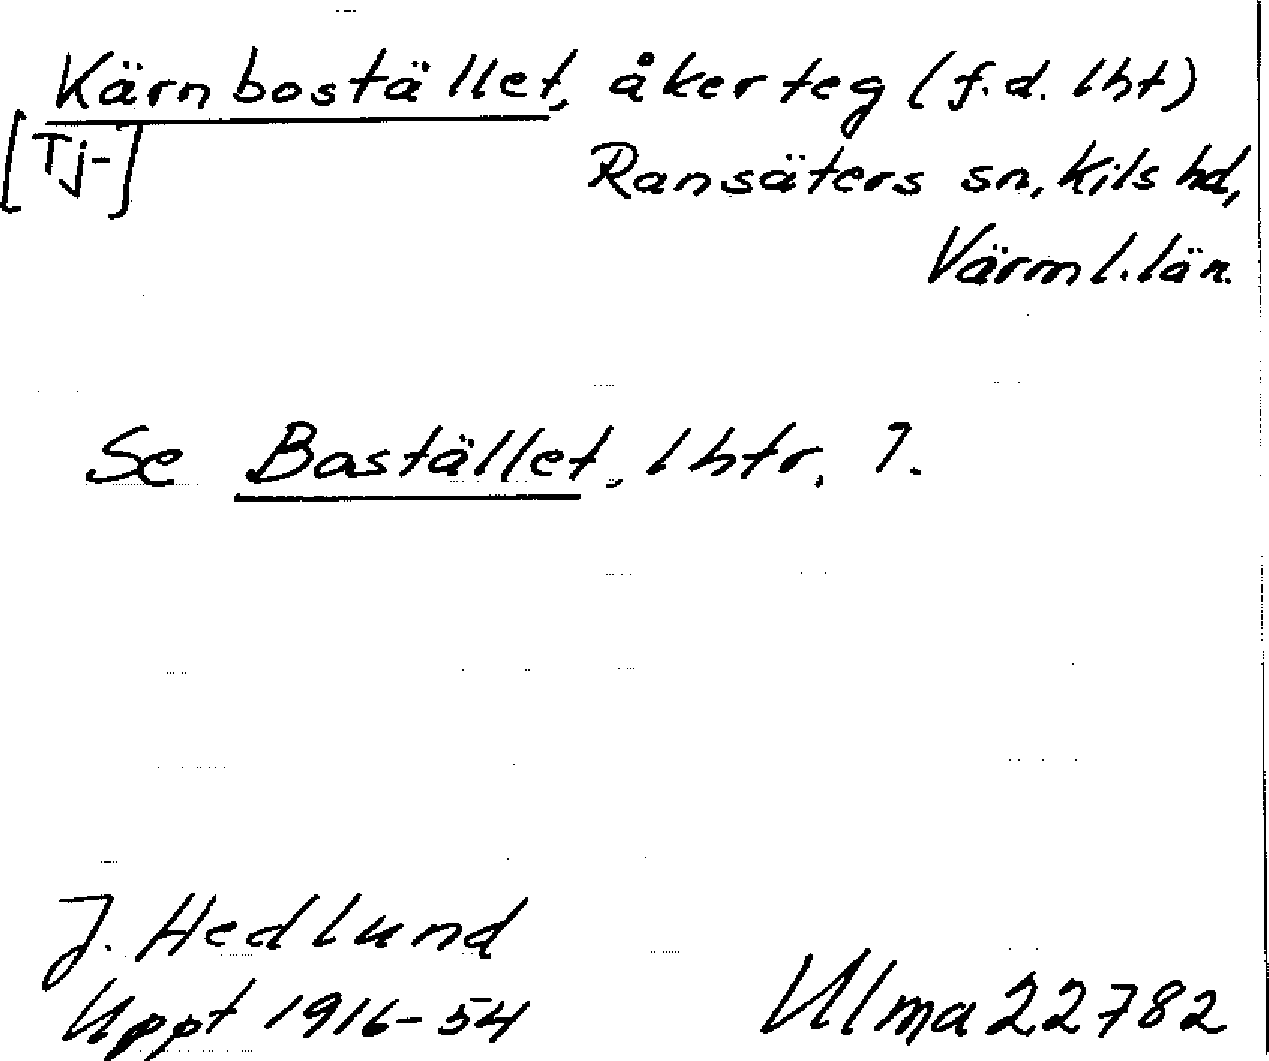 Kärnbostället, åkerteg (f.d. lht)
[Tj-]
Ransäters sn, Kils hd,
Värml. län.
Se Bostället, lhtr. 7.
J. Hedlund
Uppt 1916-54
Ulma 22782